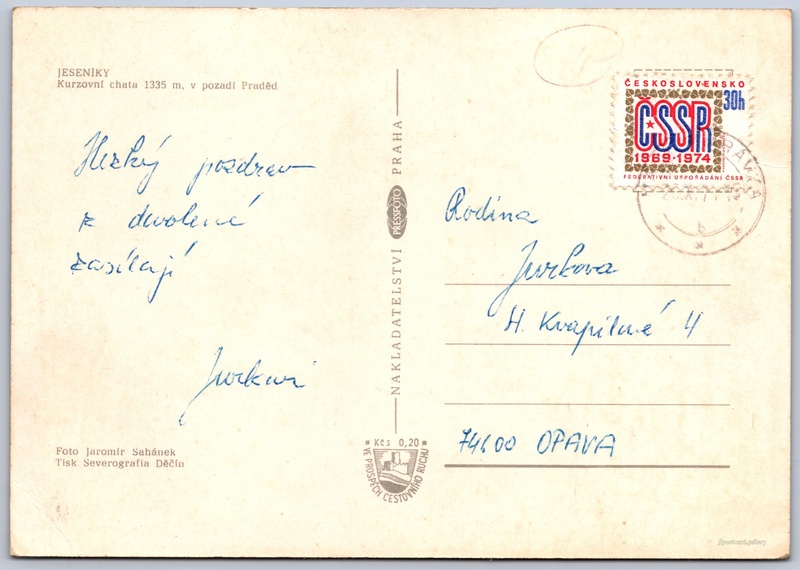 JESENÍKY
Kurzovní chata 1335 m, v pozadí Praděd
Hezký pozdrav
z dovolené
zasílají
Jurkovi
Foto Jaromír Sahánek
Tisk Severografia Děčín
NAKLADATELSTVÍ PRESSFOTO PRAHA
Kčs 0,20
VE PROSPĚCH CESTOVNÍHO RUCHU
ČESKOSLOVENSKO
30h
ČSSR
1969-1974
FEDERATIVNÍ USPOŘÁDÁNÍ ČSSR
b
Rodina
Jurkova
H. Kvapilové 4
74600 OPAVA